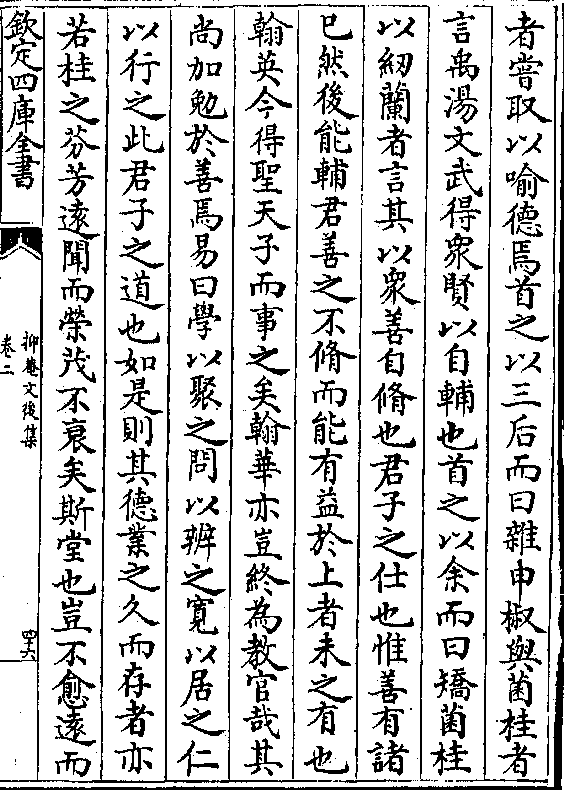 者嘗取以喻德焉首之以三后而曰雜申椒與菌桂者
言禹湯文武得衆賢以自輔也首之以余而曰矯菌桂
以紉蘭者言其以衆善自脩也君子之仕也惟善有諸
已然後能輔君善之不脩而能有益於上者未之有也
翰英今得聖天子而事之矣翰華亦豈終為教官哉其
尚加勉於善焉易曰學以聚之問以辨之寛以居之仁
以行之此君子之道也如是則其德業之久而存者亦
若桂之芬芳遠聞而榮茂不衰矣斯堂也豈不愈遠而
欽定四庫全書
抑菴文後集
卷二
四六